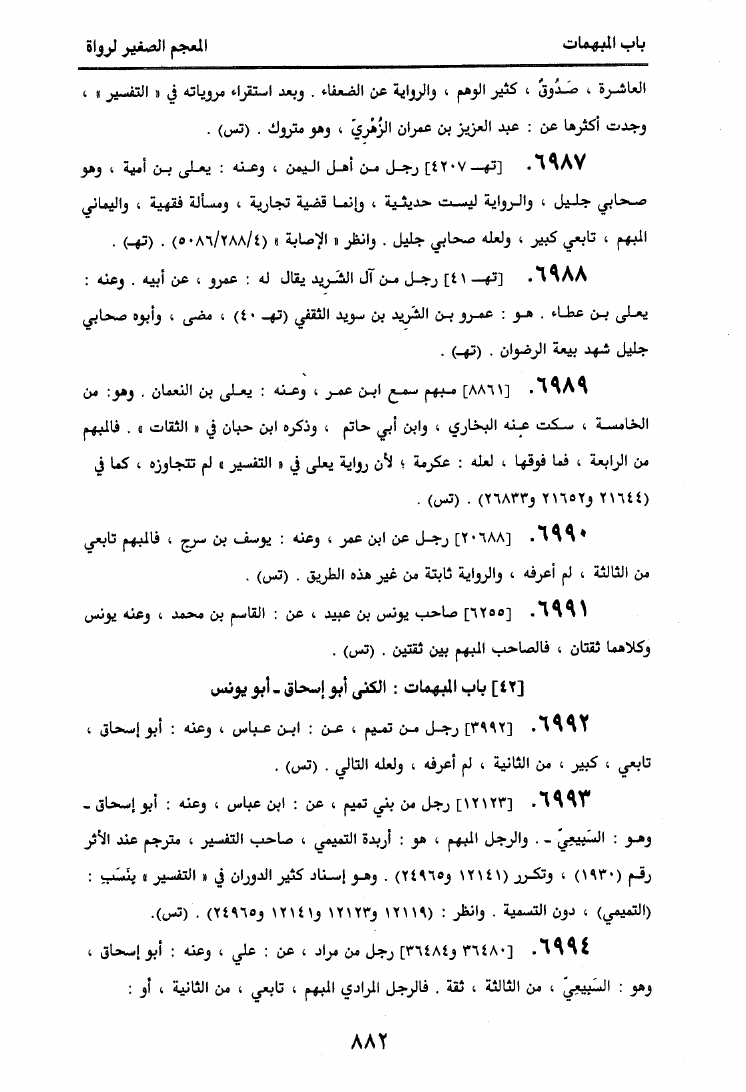 باب المبهمات
المعجم الصغير لرواة
العاشرة ، صَدُوقٌ ، كثير الوهم ، والرواية عن الضعفاء . وبعد استقراء مروياته في « التفسير » ،
وجدت أكثرها عن : عبد العزيز بن عمران الزُهْرِيّ ، وهو متروك . (تس) .
٦٩٨٧. [تهـ ٤٢٠٧] رجل من أهل اليمن ، وعنه : يعلى بن أمية ، وهو
صحابي جليل ، والرواية ليست حديثية ، وإنما قضية تجارية ، ومسألة فقهية ، واليماني
المبهم ، تابعي كبير ، ولعله صحابي جليل . وانظر « الإصابة » (٥٠٨٦/٢٨٨/٤) . (تهـ) .
٦٩٨٨. [تهـ ٤١] رجل من آل الشريد يقال له : عمرو ، عن أبيه . وعنه :
يعلى بن عطاء . هو : عمرو بن الشَرِيد بن سويد الثقفي (تهـ ٤٠) ، مضى ، وأبوه صحابي
جليل شهد بيعة الرضوان . (تهـ) .
٦٩٨٩. [٨٨٦١] مبهم سمع ابن عمر ، وعنه : يعلى بن النعمان . وهو: من
الخامسة ، سكت عنه البخاري ، وابن أبي حاتم ، وذكره ابن حبان في « الثقات » . فالمبهم
من الرابعة ، فما فوقها ، لعله : عكرمة ؛ لأن رواية يعلى في « التفسير » لم تتجاوزه ، كما في
(٢١٦٤٤ و٢١٦٥٢ و٢٦٨٣٣) . (تس) .
٦٩٩٠. [٢٠٦٨٨] رجل عن ابن عمر ، وعنه : يوسف بن سرج ، فالمبهم تابعي
من الثالثة ، لم أعرفه ، والرواية ثابتة من غير هذه الطريق . (تس) .
٦٩٩١. [٦٢٥٥] صاحب يونس بن عبيد ، عن : القاسم بن محمد ، وعنه يونس
وكلاهما ثقتان ، فالصاحب المبهم بين ثقتين . (تس) .
[٤٢] باب المبهمات : الكنى أبو إسحاق ـ أبو يونس
٦٩٩٢. [٣٩٩٢] رجل من تميم ، عن : ابن عباس ، وعنه : أبو إسحاق ،
تابعي ، كبير ، من الثانية ، لم أعرفه ، ولعله التالي . (تس) .
٦٩٩٣. [١٢١٢٣] رجل من بني تميم ، عن : ابن عباس ، وعنه : أبو إسحاق ـ
وهو : السَبِيعِيّ ـ . والرجل المبهم ، هو : أربدة التميمي ، صاحب التفسير ، مترجم عند الأثر
رقم (١٩٣٠) ، وتكرر (١٢١٤١ و٢٤٩٦٥) . وهو إسناد كثير الدوران في « التفسير » بِنَسَبِ :
(التميمي) ، دون التسمية . وانظر : (١٢١١٩ و١٢١٢٣ و١٢١٤١ و٢٤٩٦٥) . (تس).
٦٩٩٤. [٣٦٤٨٠ و٣٦٤٨٤] رجل من مراد ، عن : علي ، وعنه : أبو إسحاق ،
وهو : السَبِيعِيّ ، من الثالثة ، ثقة . فالرجل المرادي المبهم ، تابعي ، من الثانية ، أو :
٨٨٢